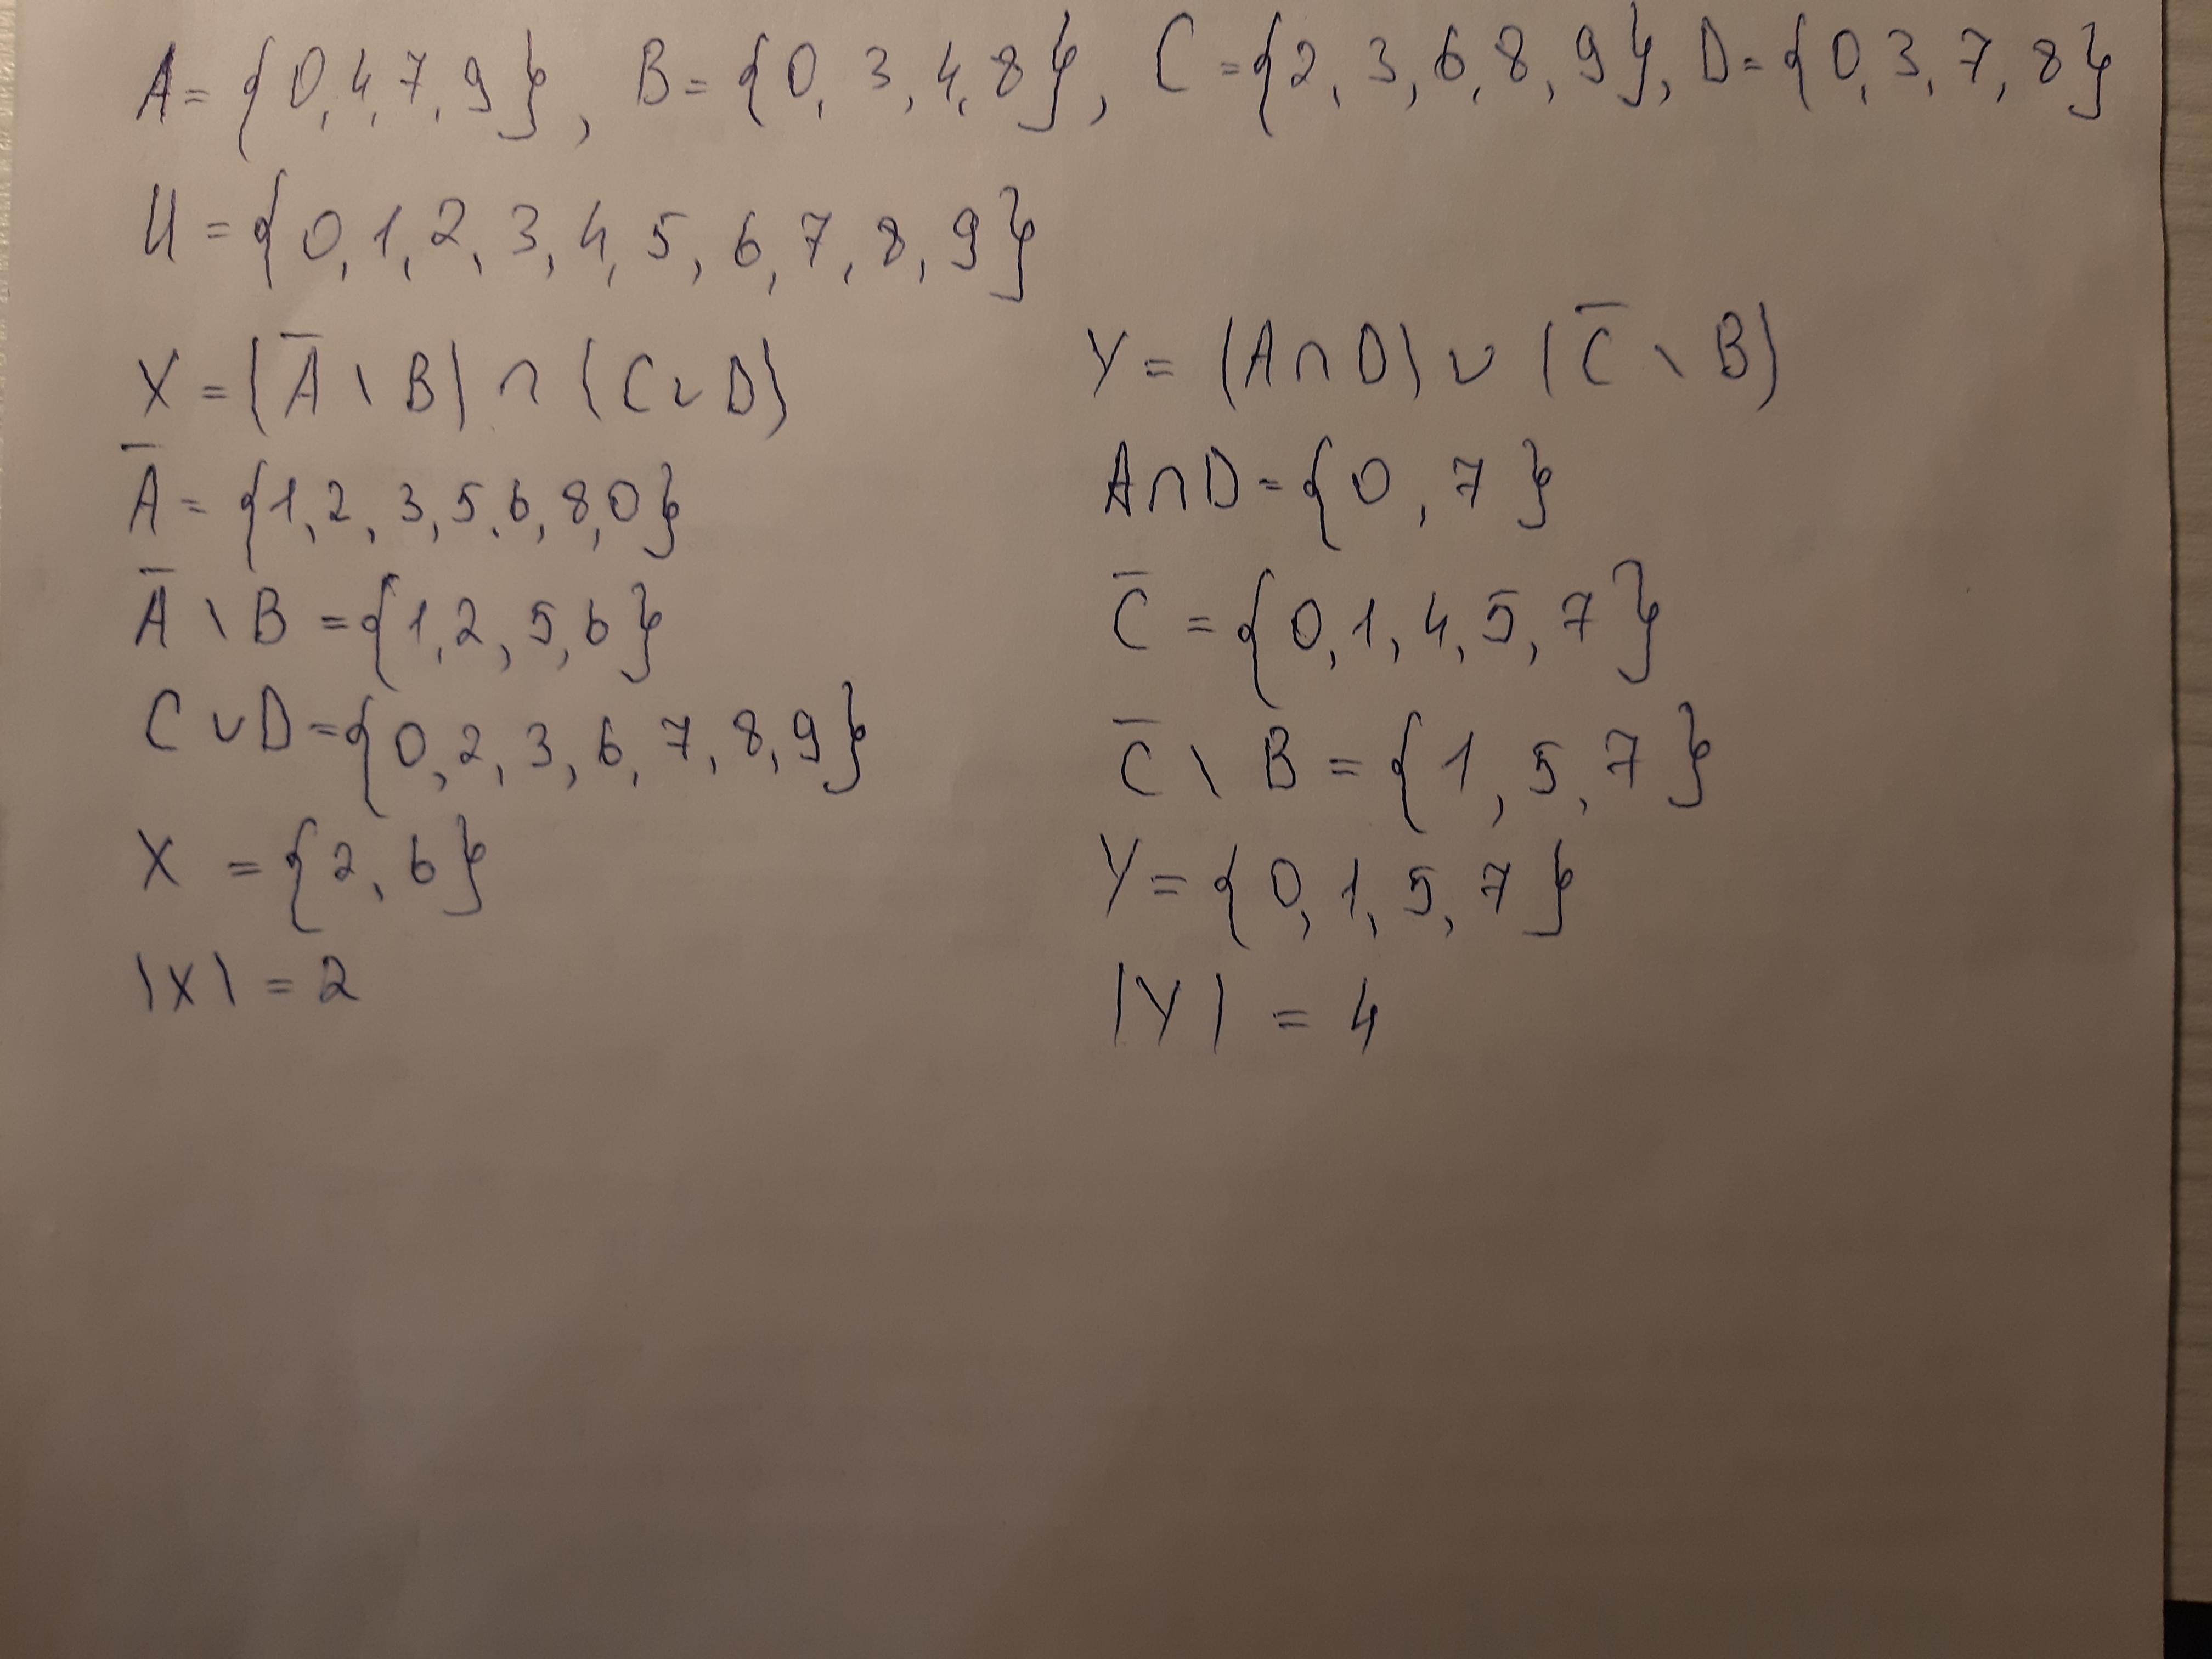 A = {0, 4, 7, 9}, B = {0, 3, 4, 8}, C = {2, 3, 6, 8, 9}, D = {0, 3, 7, 8}
U = {0, 1, 2, 3, 4, 5, 6, 7, 8, 9}
X = (A̅ \ B) ∩ (C ∪ D)
A̅ = {1, 2, 3, 5, 6, 8, 0}
A̅ \ B = {1, 2, 5, 6}
C ∪ D = {0, 2, 3, 6, 7, 8, 9}
X = {2, 6}
|X| = 2
Y = (A ∩ D) ∪ (C̅ \ B)
A ∩ D = {0, 7}
C̅ = {0, 1, 4, 5, 7}
C̅ \ B = {1, 5, 7}
Y = {0, 1, 5, 7}
|Y| = 4